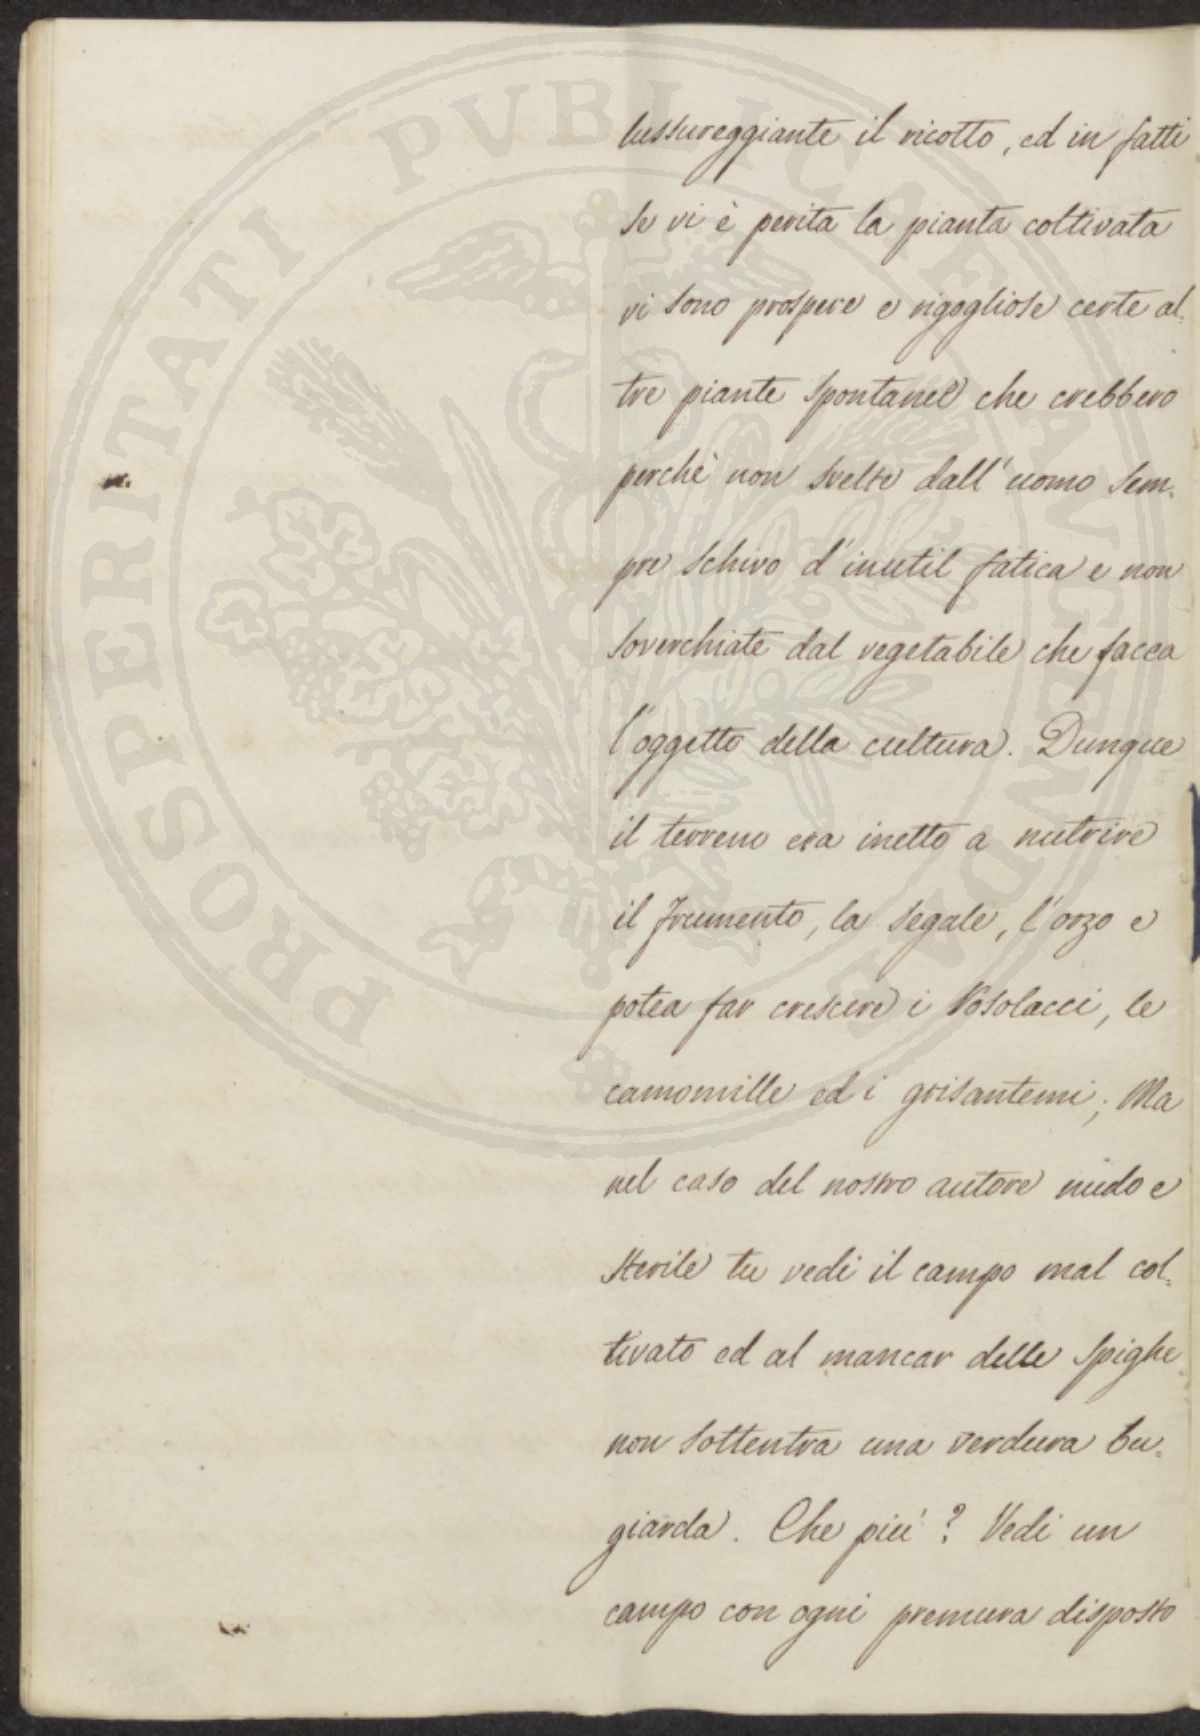 lussureggiante il ricolto, ed in fatti
se vi è perita la pianta coltivata
vi sono prospere e rigogliose certe al=
tre piante spontanee che crebbero
perchè non svelte dall'uomo sem=
pre schivo d'inutil fatica e non
soverchiate dal vegetabile che facea
l'oggetto della cultura. Dunque
il terreno era inetto a nutrire
il frumento, la segale, l'orzo e
potea far crescere i Rosolacci, le
camomille ed i grisantemi; Ma
nel caso del nostro autore nudo e
sterile tu vedi il campo mal col=
tivato ed al mancar delle spighe
non sottentra una verdura bu=
giarda. Che più? Vedi un
campo con ogni premura disposto
PROSPERITATI PVBLICAE AVGENDAE